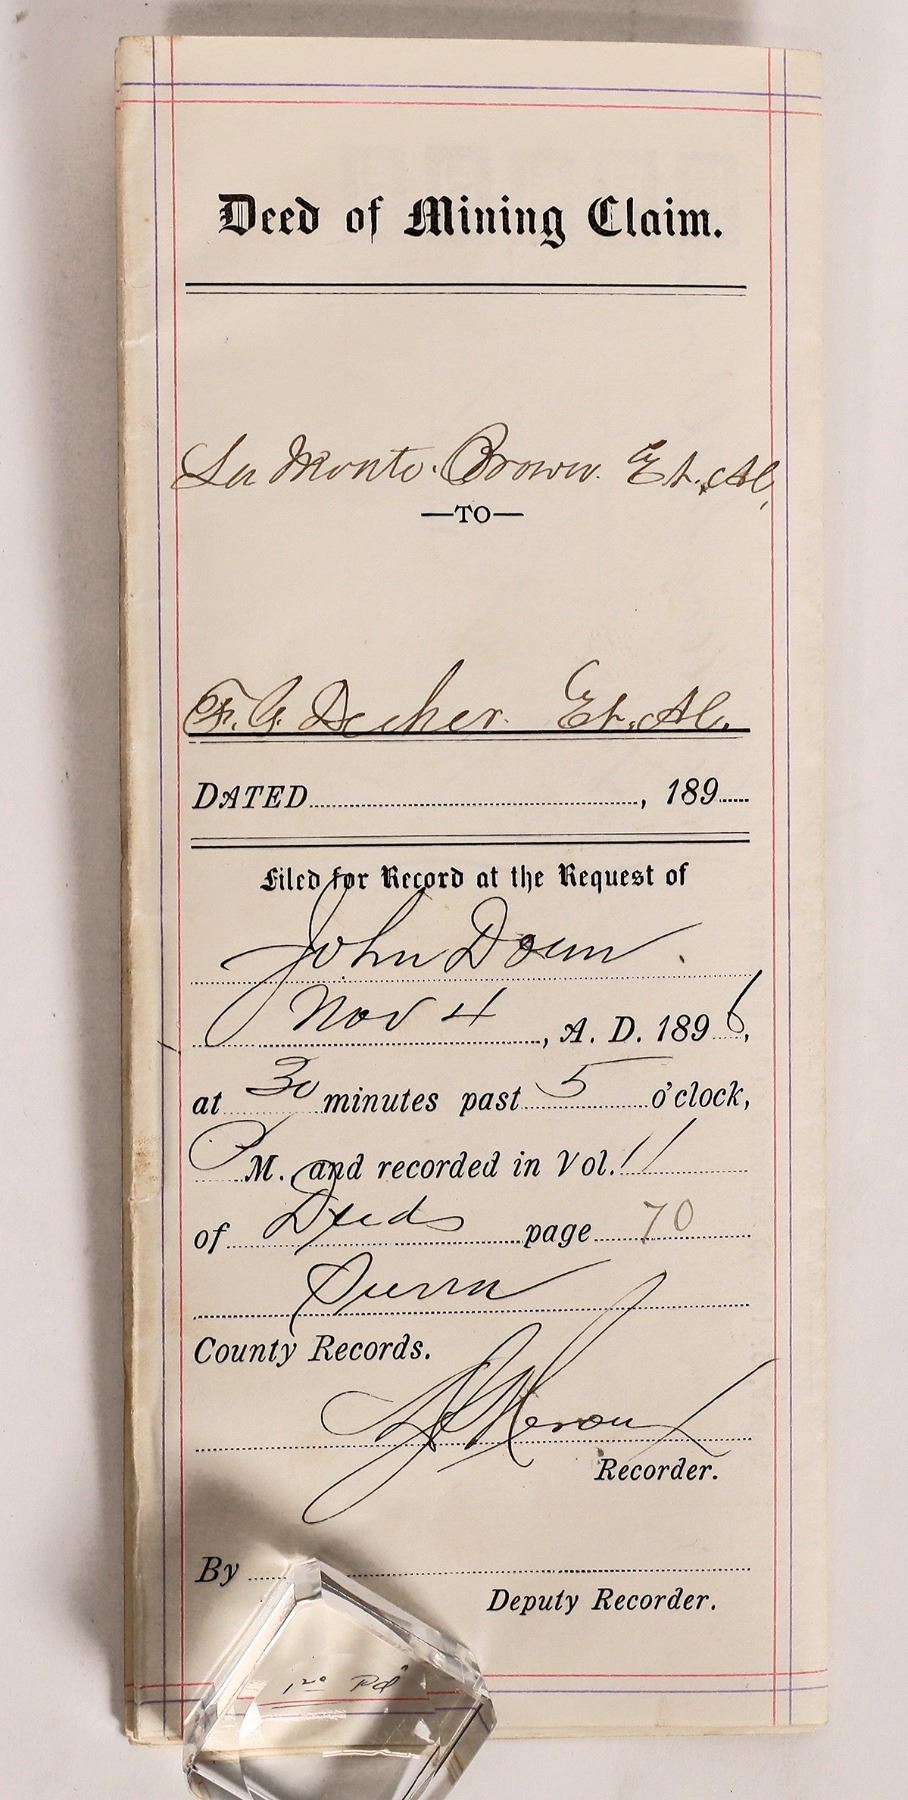 Deed of Mining Claim.
La Monte Brown Et. Al,
—TO—
F. A. Decker Et. Al.
DATED , 189
Filed for Record at the Request of
John Doun
Nov 4, A. D. 1896,
at 30 minutes past 5 o'clock,
P M. and recorded in Vol. 11
of Deeds page 70
Sierra
County Records.
Recorder.
By
Deputy Recorder.
1.20 Pd